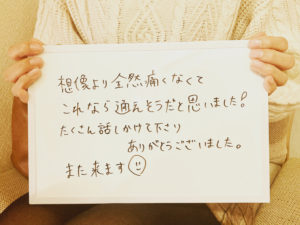 想像より全然痛くなくて
これなら通えそうだと思いました!
たくさん話しかけて下さり
ありがとうございました。
また来ます